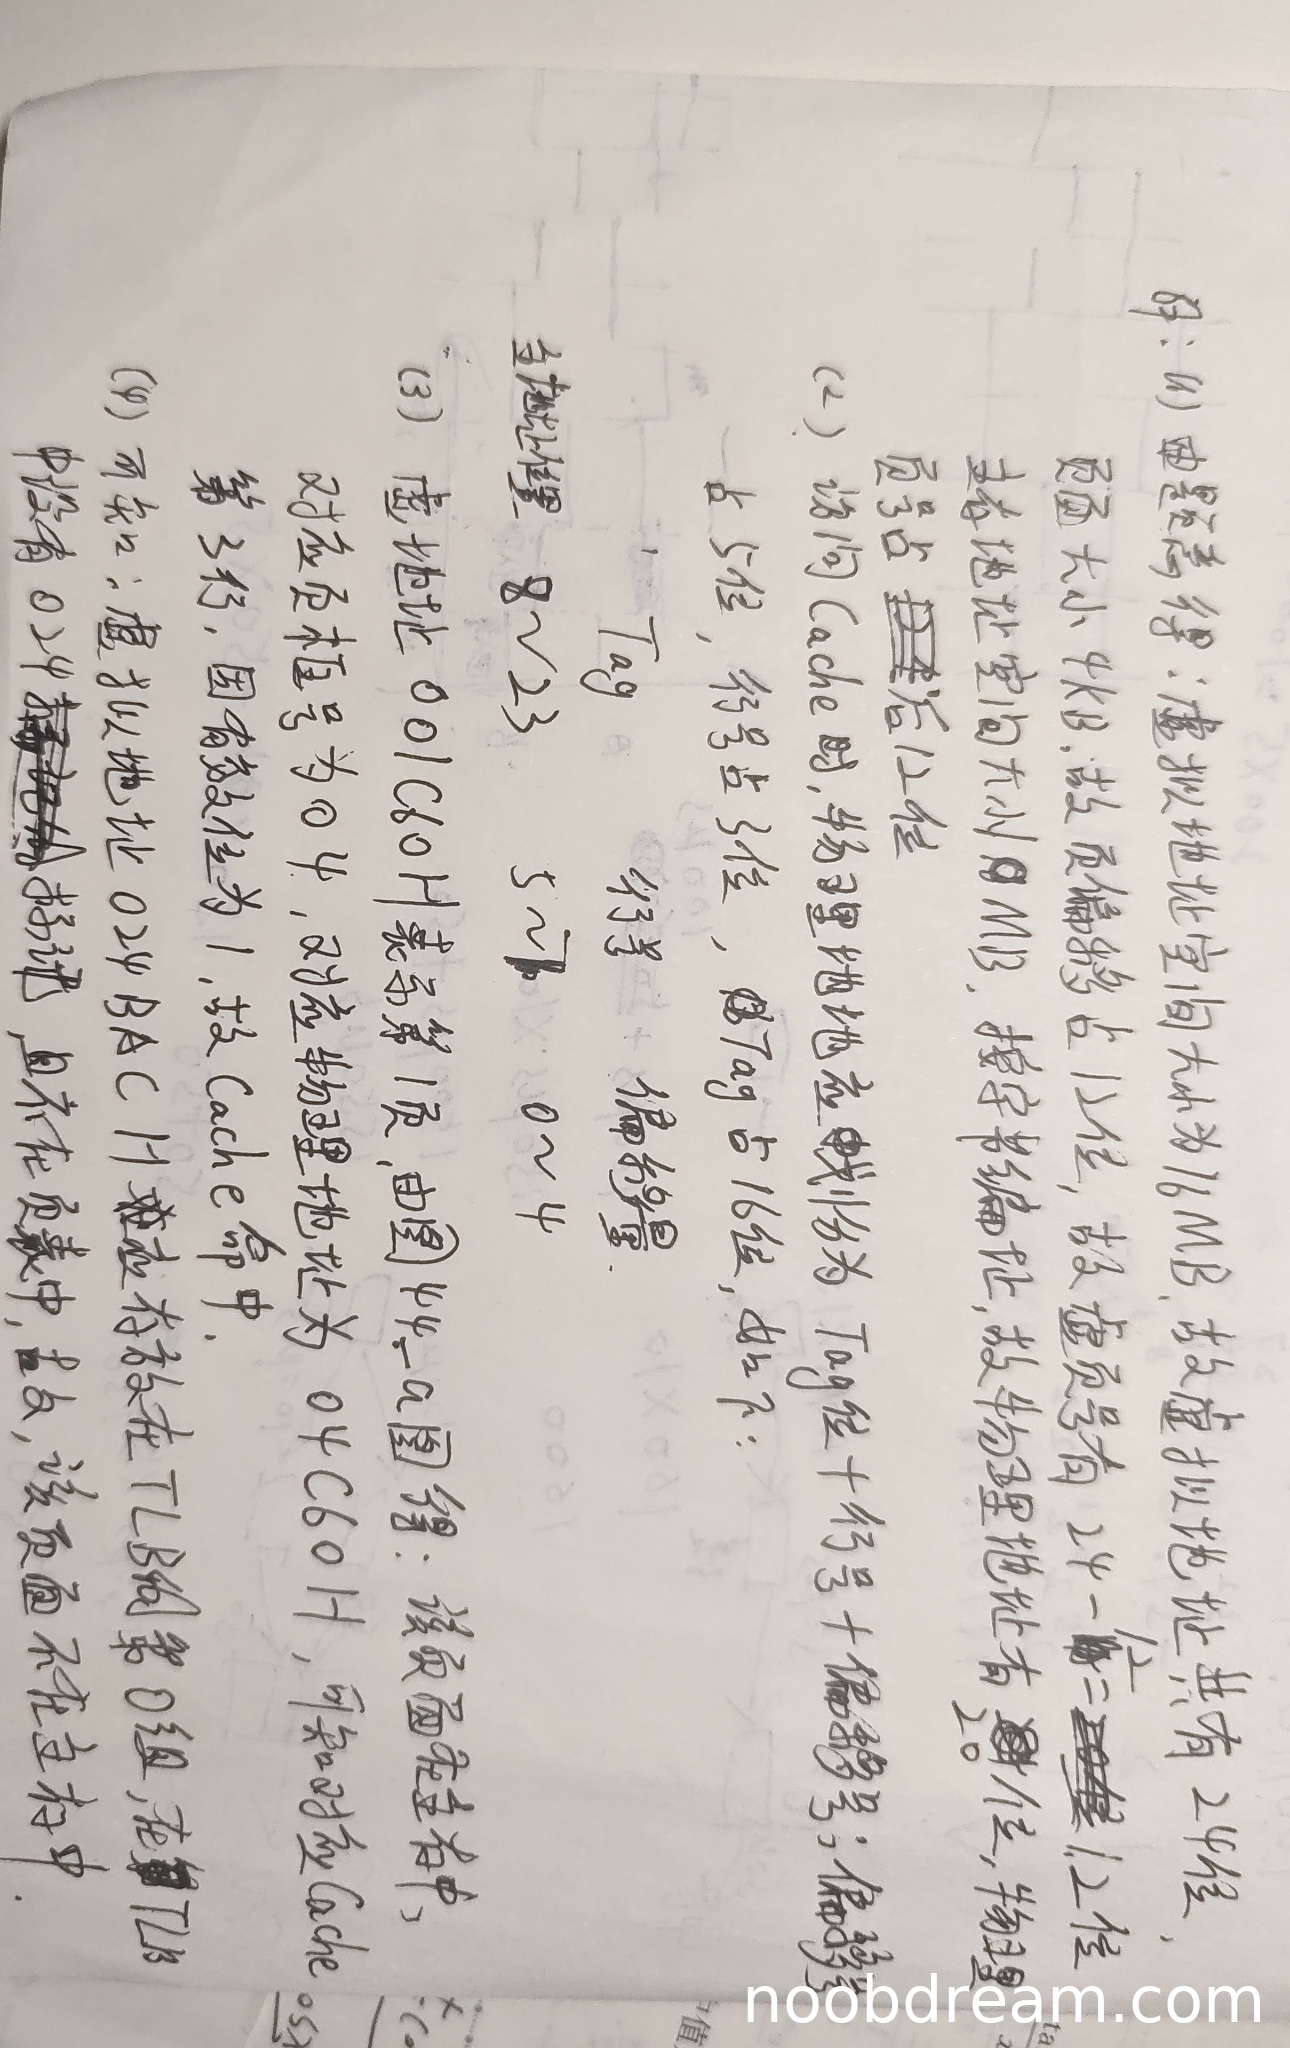 解：(1) 由题意得：虚拟地址空间大小为16MB，故虚拟地址共有24位，
页面大小4KB，故页偏移占12位，故虚页号有24-12=12位
主存地址空间大小1MB，按字节编址，故物理地址有20位，物理
页号占后12位
(2) 访问Cache时，物理地址应划分为Tag位+行号+偏移号；偏移
占5位，行号占3位，Tag占16位，如下：
Tag 行号 偏移量
主地址位置 8~23 5~7 0~4
(3) 虚地址001C60H表示第1页，由图44-a图得：该页面在主存中，
对应页框号为04，对应物理地址为04C60H，可知对应Cache
第3行，因有效位为1，故Cache命中．
(4) 可知：虚拟地址024BACH应存放在TLB的第0组，在TLB
中没有024标记，且不在页表中，故，该页面不在主存中．
noobdream.com